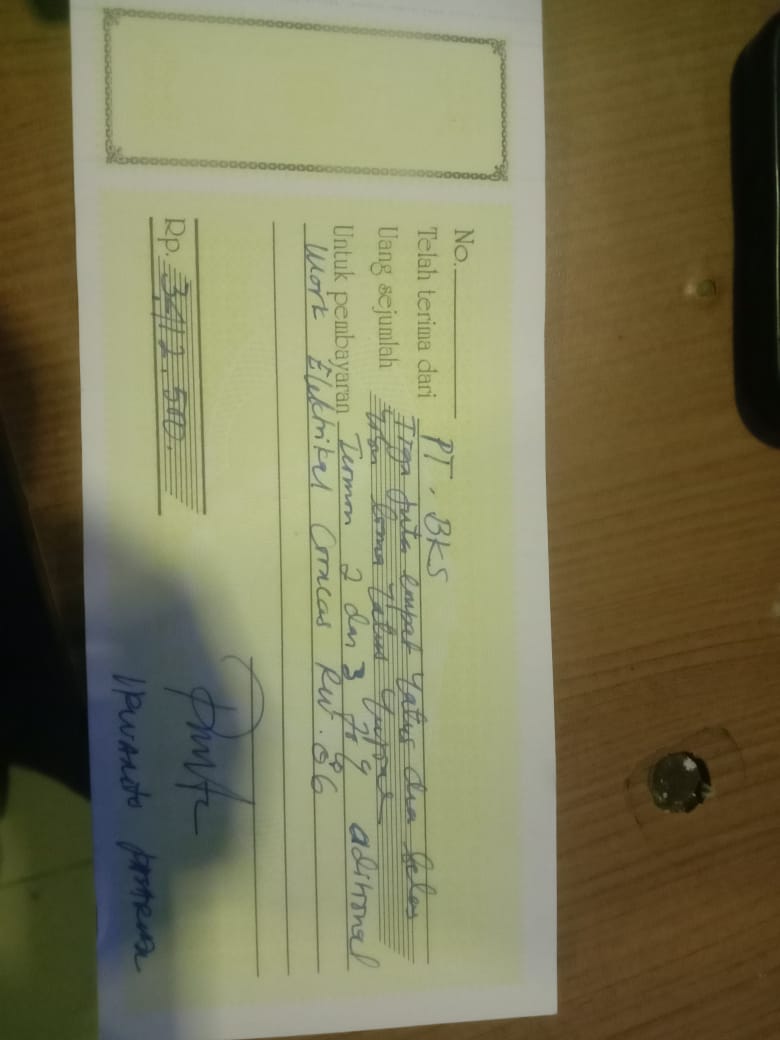 No.
Telah terima dari PT. BKS
Uang sejumlah Tiga juta empat ratus dua belas
ribu lima ratus rupiah
Untuk pembayaran Termin 2 dan 3 aditional
Work Elektrikal Ciracas RW. 06
Rp. 3.412.500.